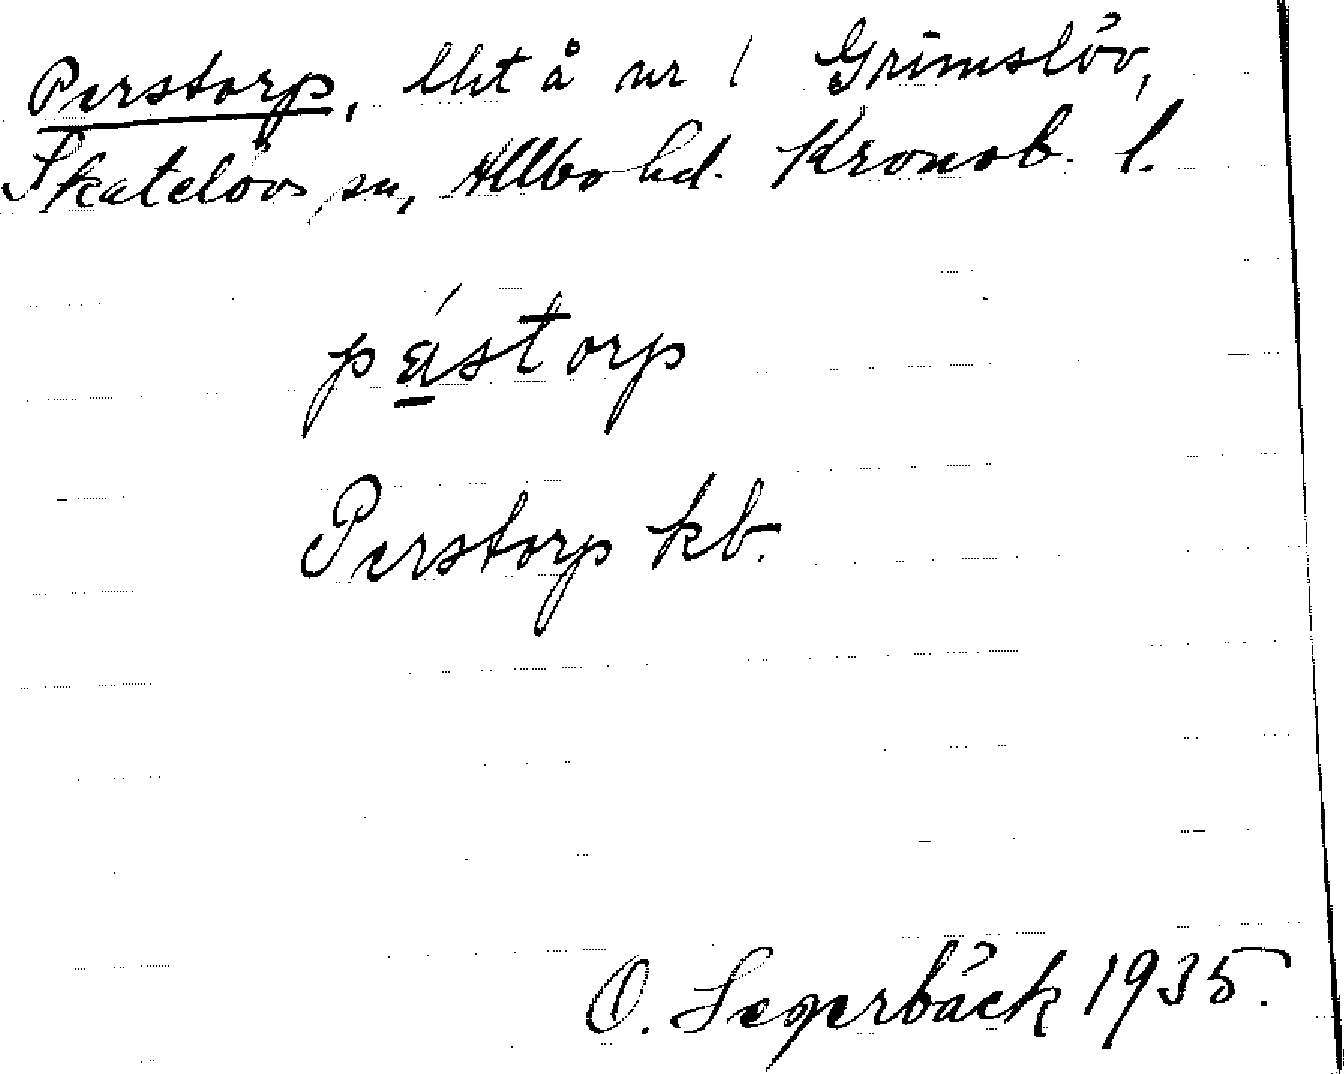 Perstorp, lht å nr 1 Grimslöv,
Skatelövs sn, Allbo hd. Kronob. l.
pástorp
Perstorp kb.
O. Segerbäck 1935.